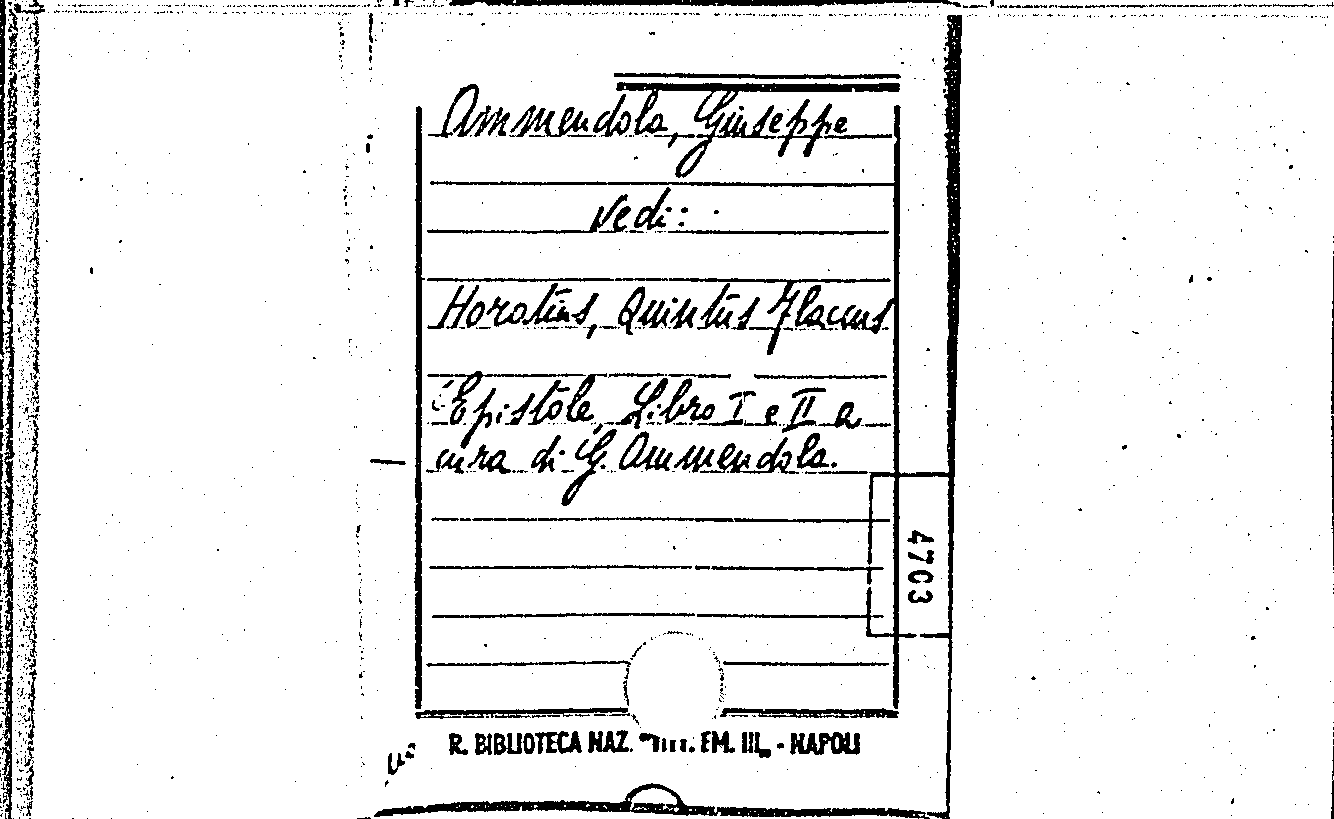 Ammendola, Giuseppe
Vedi:
Horatius, Quintus Flaccus
Epistole, Libro I e II a
cura di G. Ammendola.
4703
R. BIBLIOTECA NAZ. EM. III„ - NAPOLI